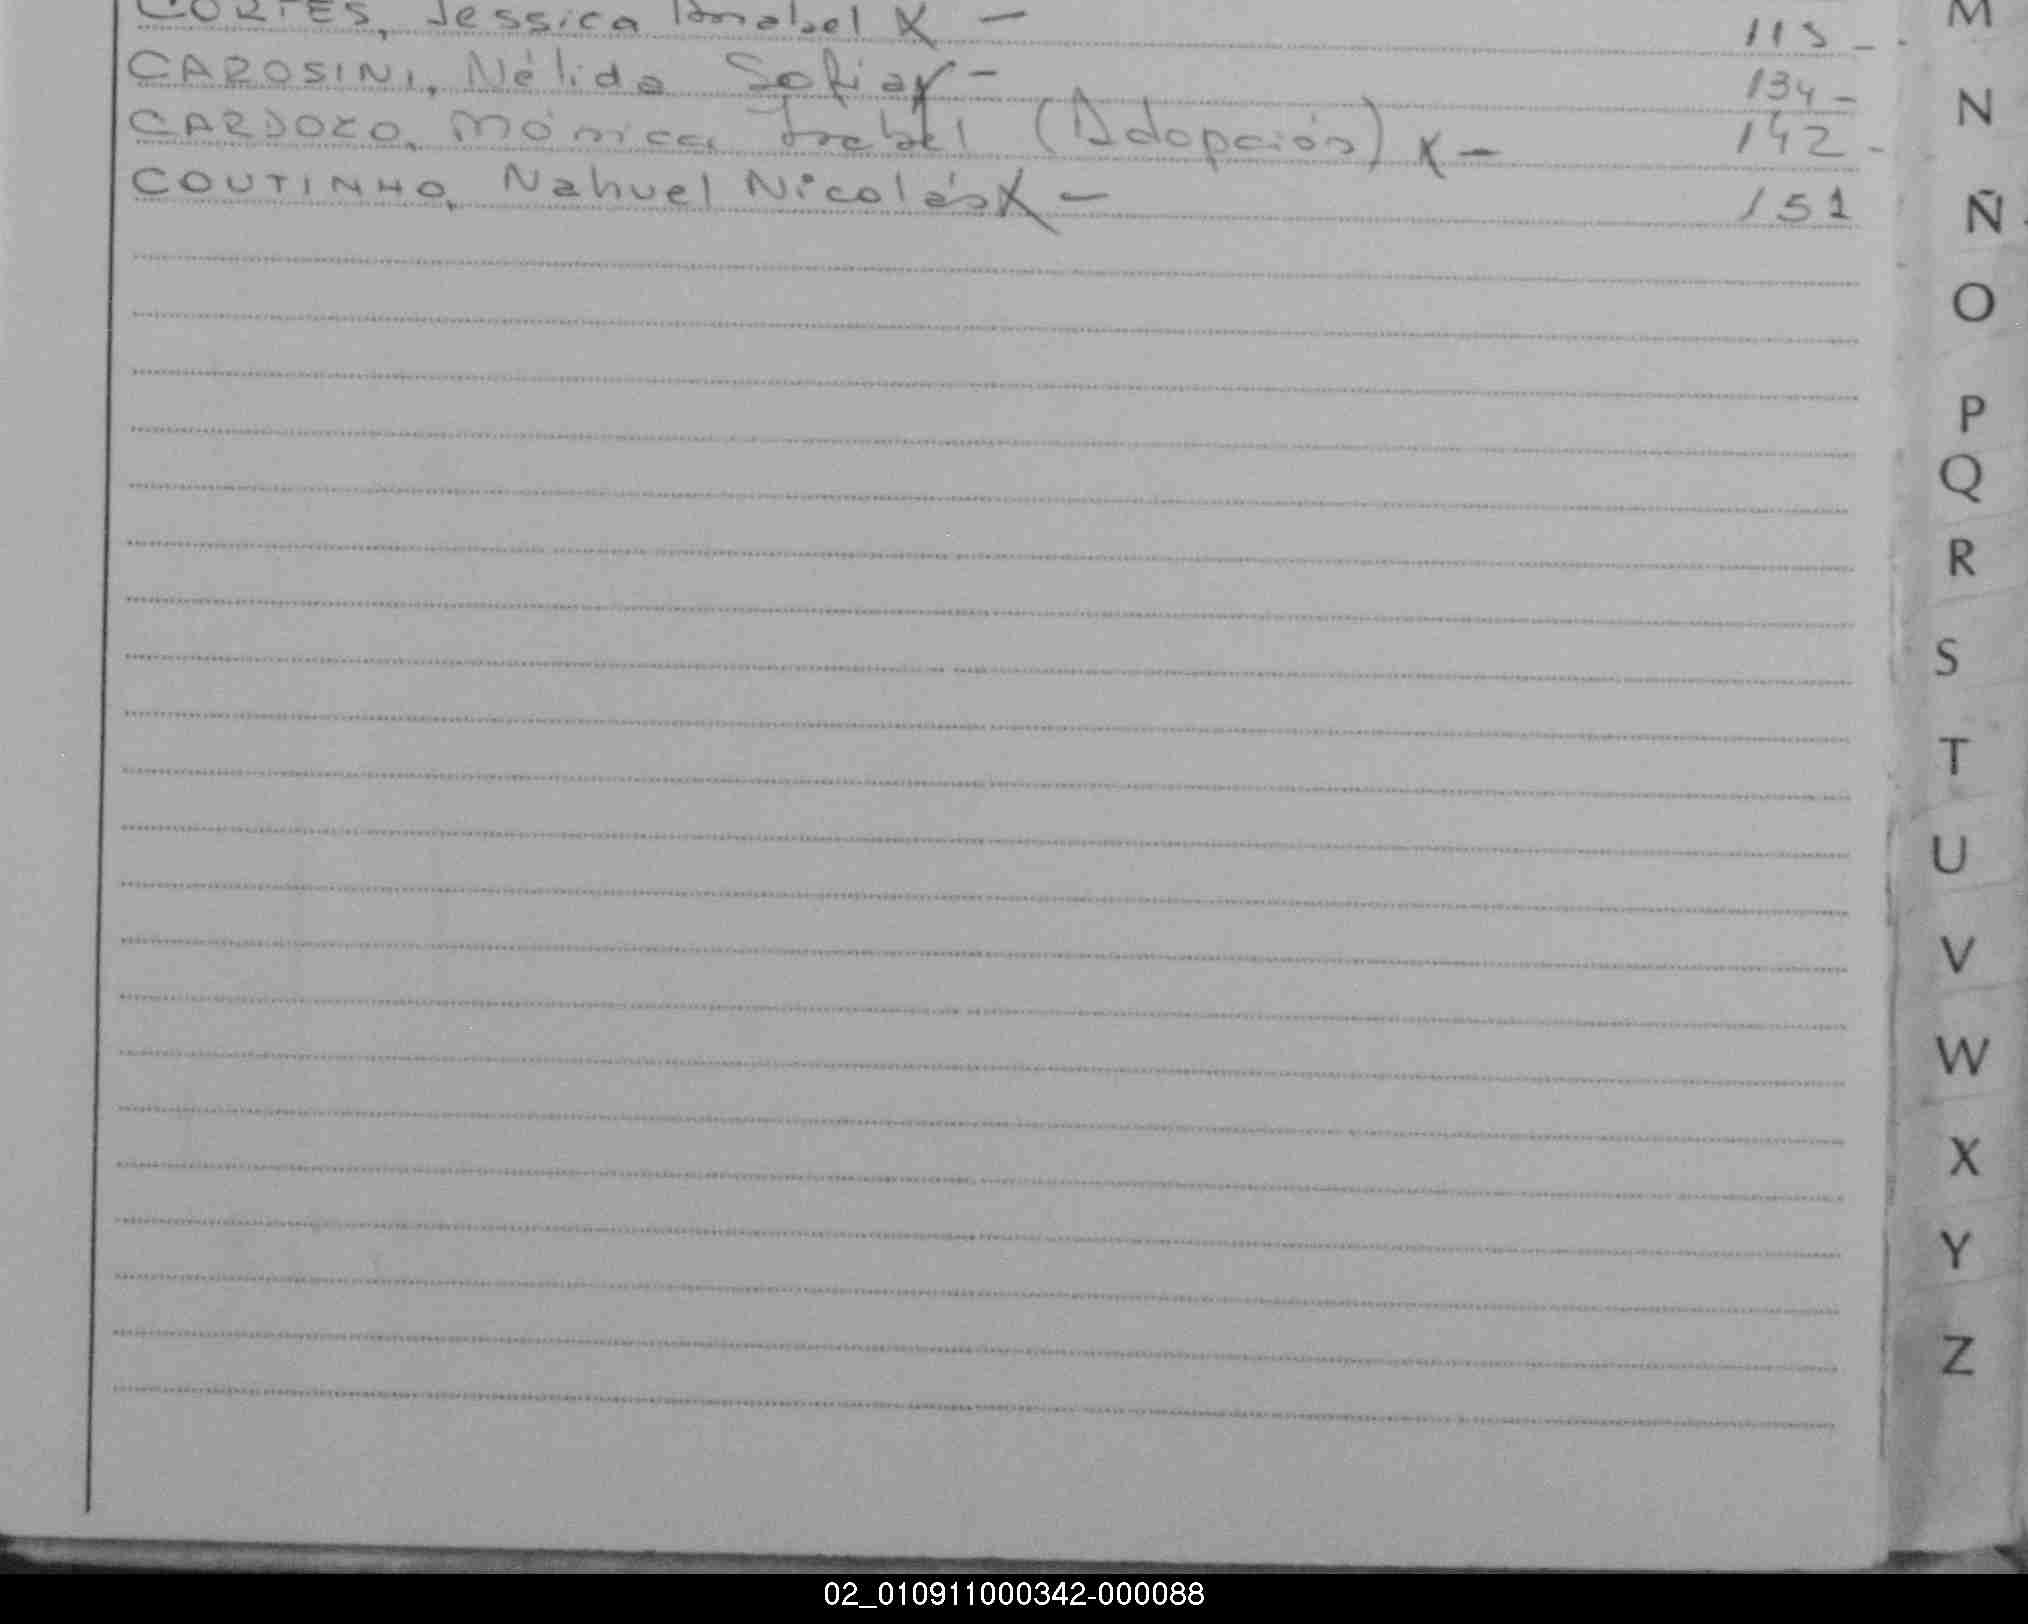 CORTES, Jessica Anabel X - 115 -
CAROSINI, Nélida Sofia X - 134 -
CARDOZO, Mónica Isabel (Adopción) X - 142 -
COUTINHO, Nahuel Nicolás X - 151
M
N
Ñ
O
P
Q
R
S
T
U
V
W
X
Y
Z
02_010911000342-000088